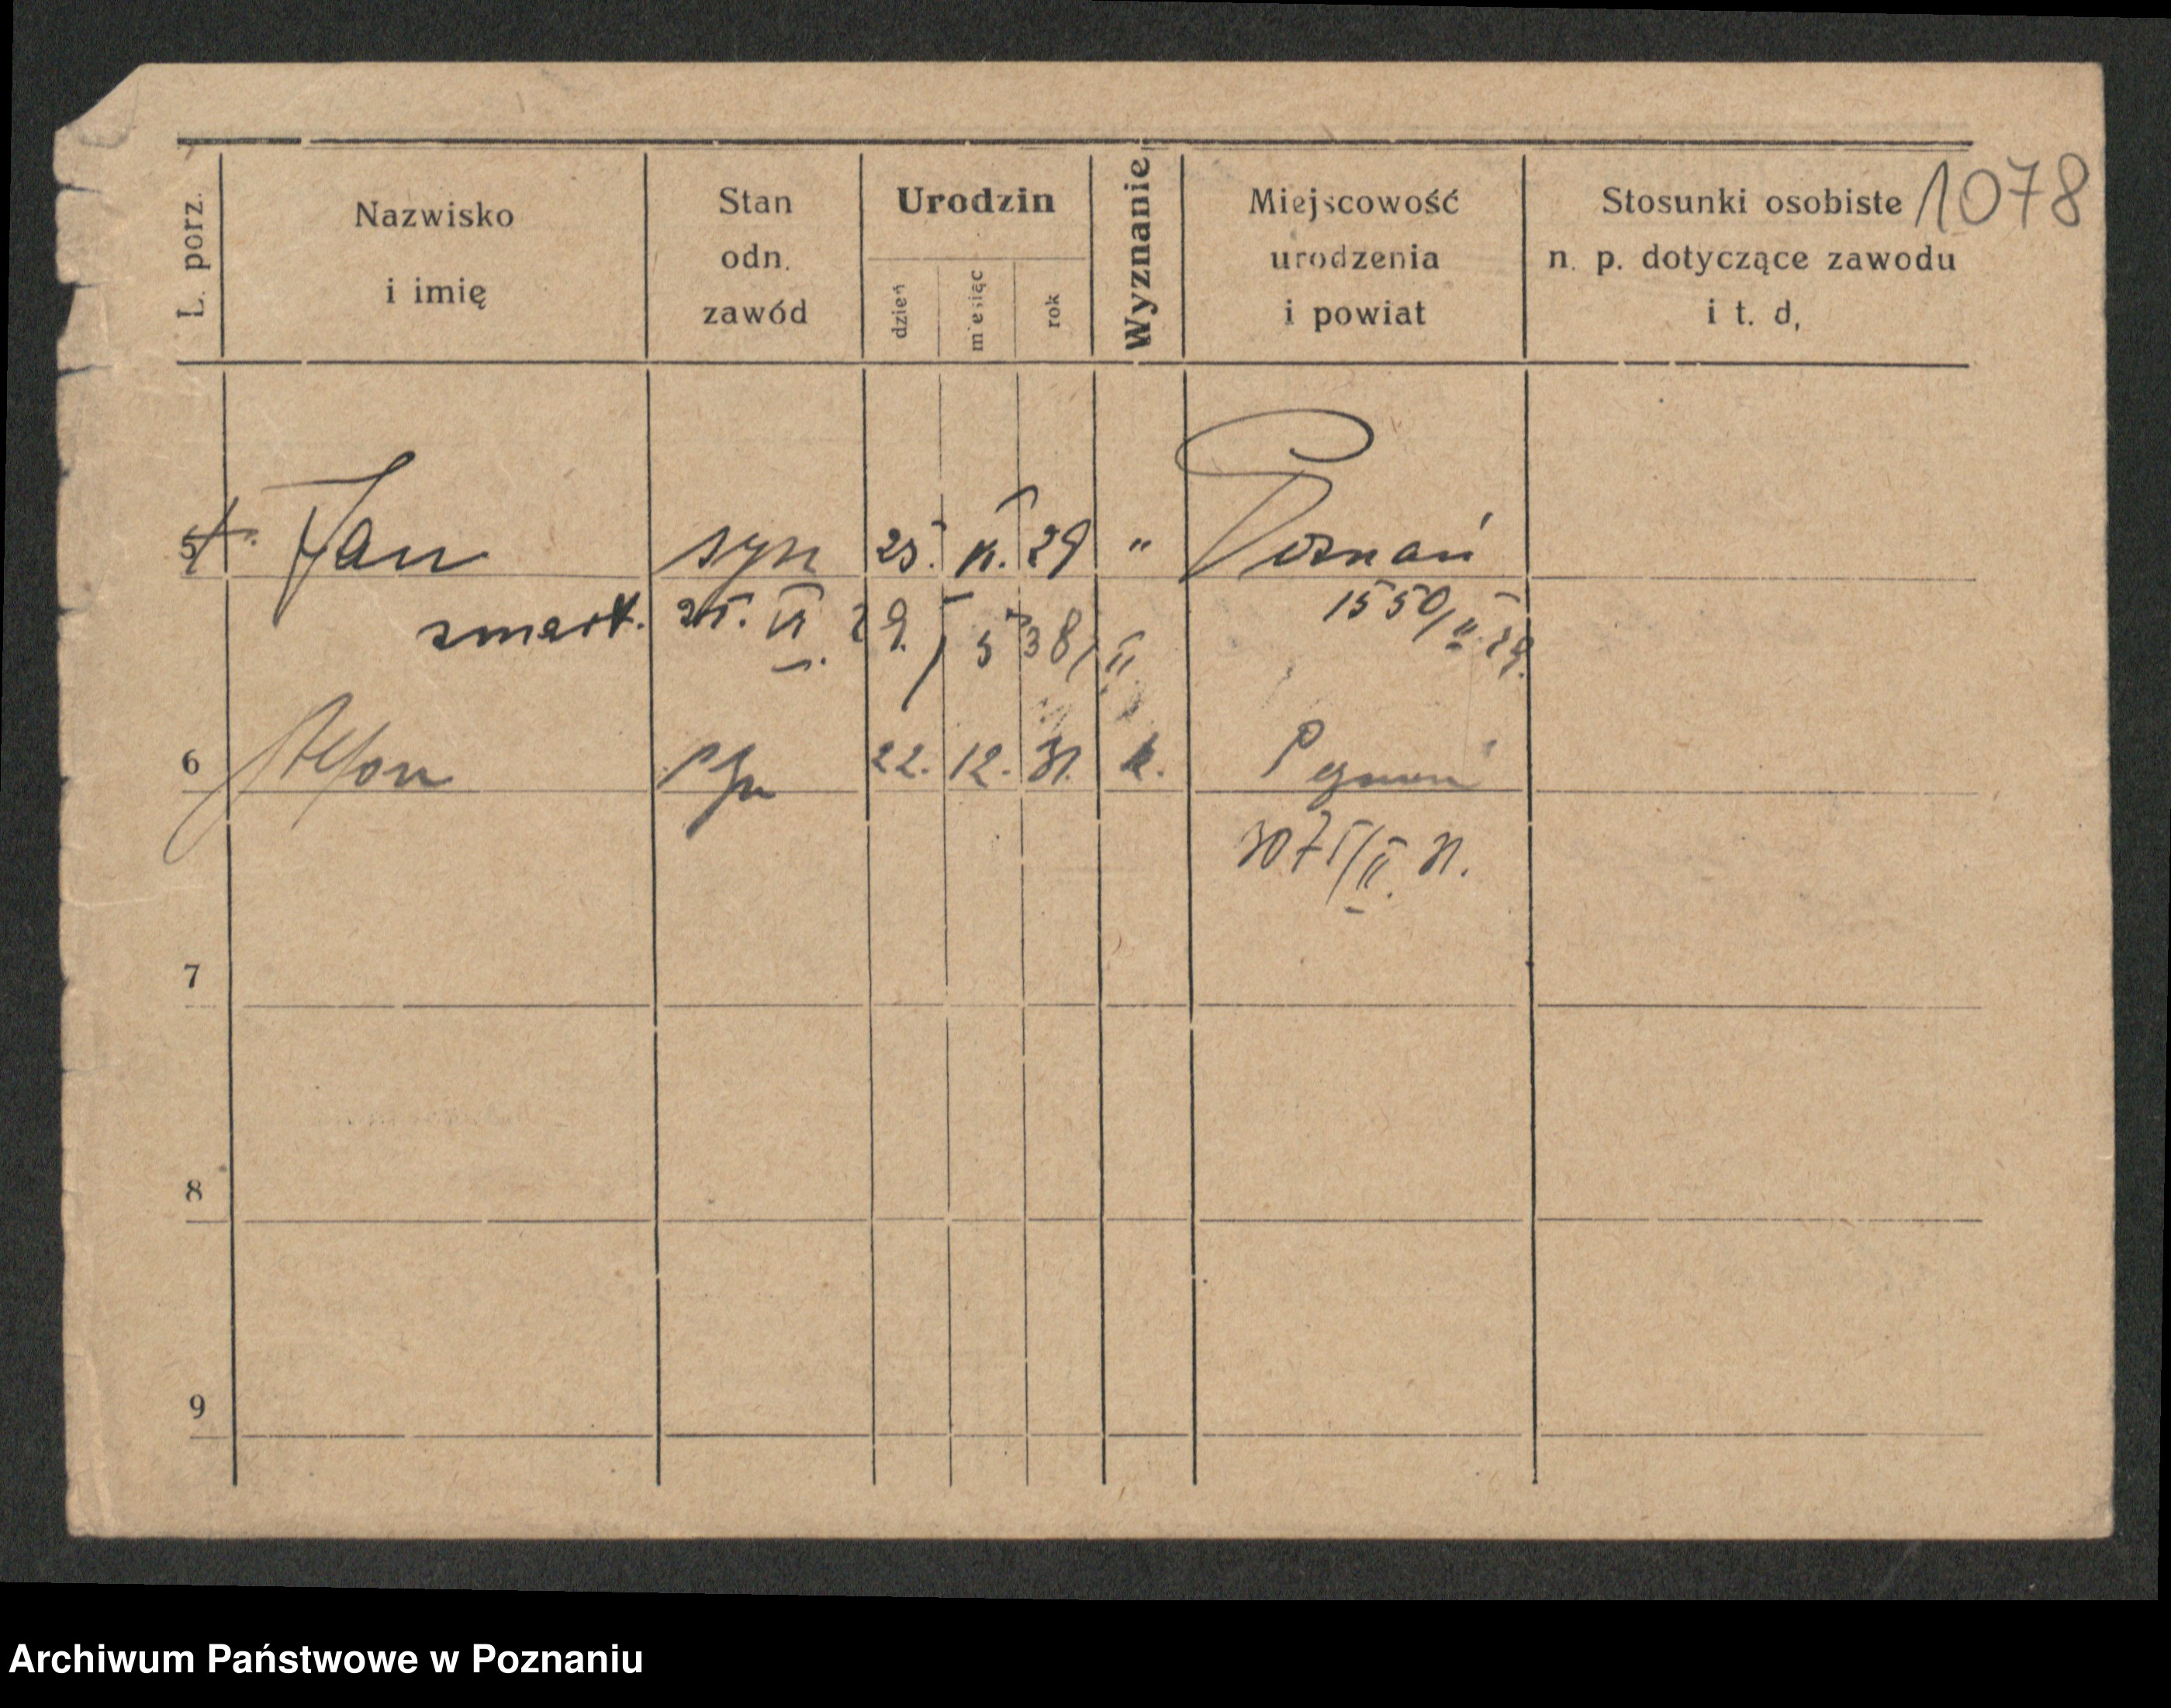 1078
L. porz.
Nazwisko
i imię
Stan
odn.
zawód
Urodzin
dzień
miesiąc
rok
Wyznanie
Miejscowość
urodzenia
i powiat
Stosunki osobiste
n. p. dotyczące zawodu
i t. d,
5 Jan syn 25. VI. 29 " Poznań
zmarł. 25. VI. 29. 1550/II.29.
6 syn 22. 12. 31. k. Poznań
3075/II. 31.
7
8
9
Archiwum Państwowe w Poznaniu